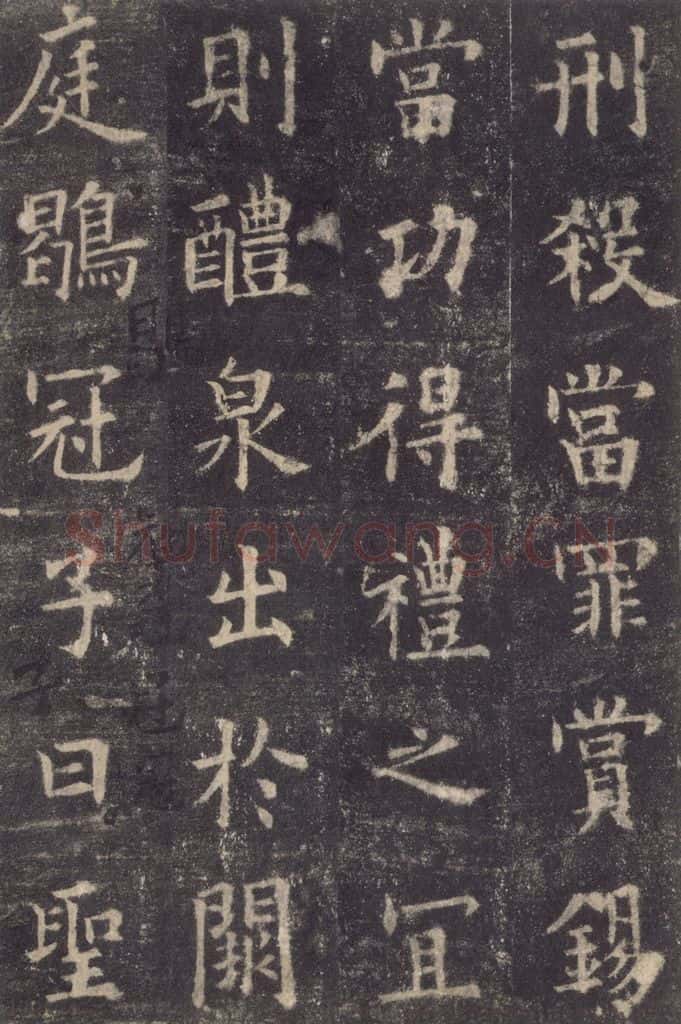 刑殺當罪賞錫
當功得禮之宜
則醴泉出於闕
庭鶡冠子曰聖
Shufawang.CN